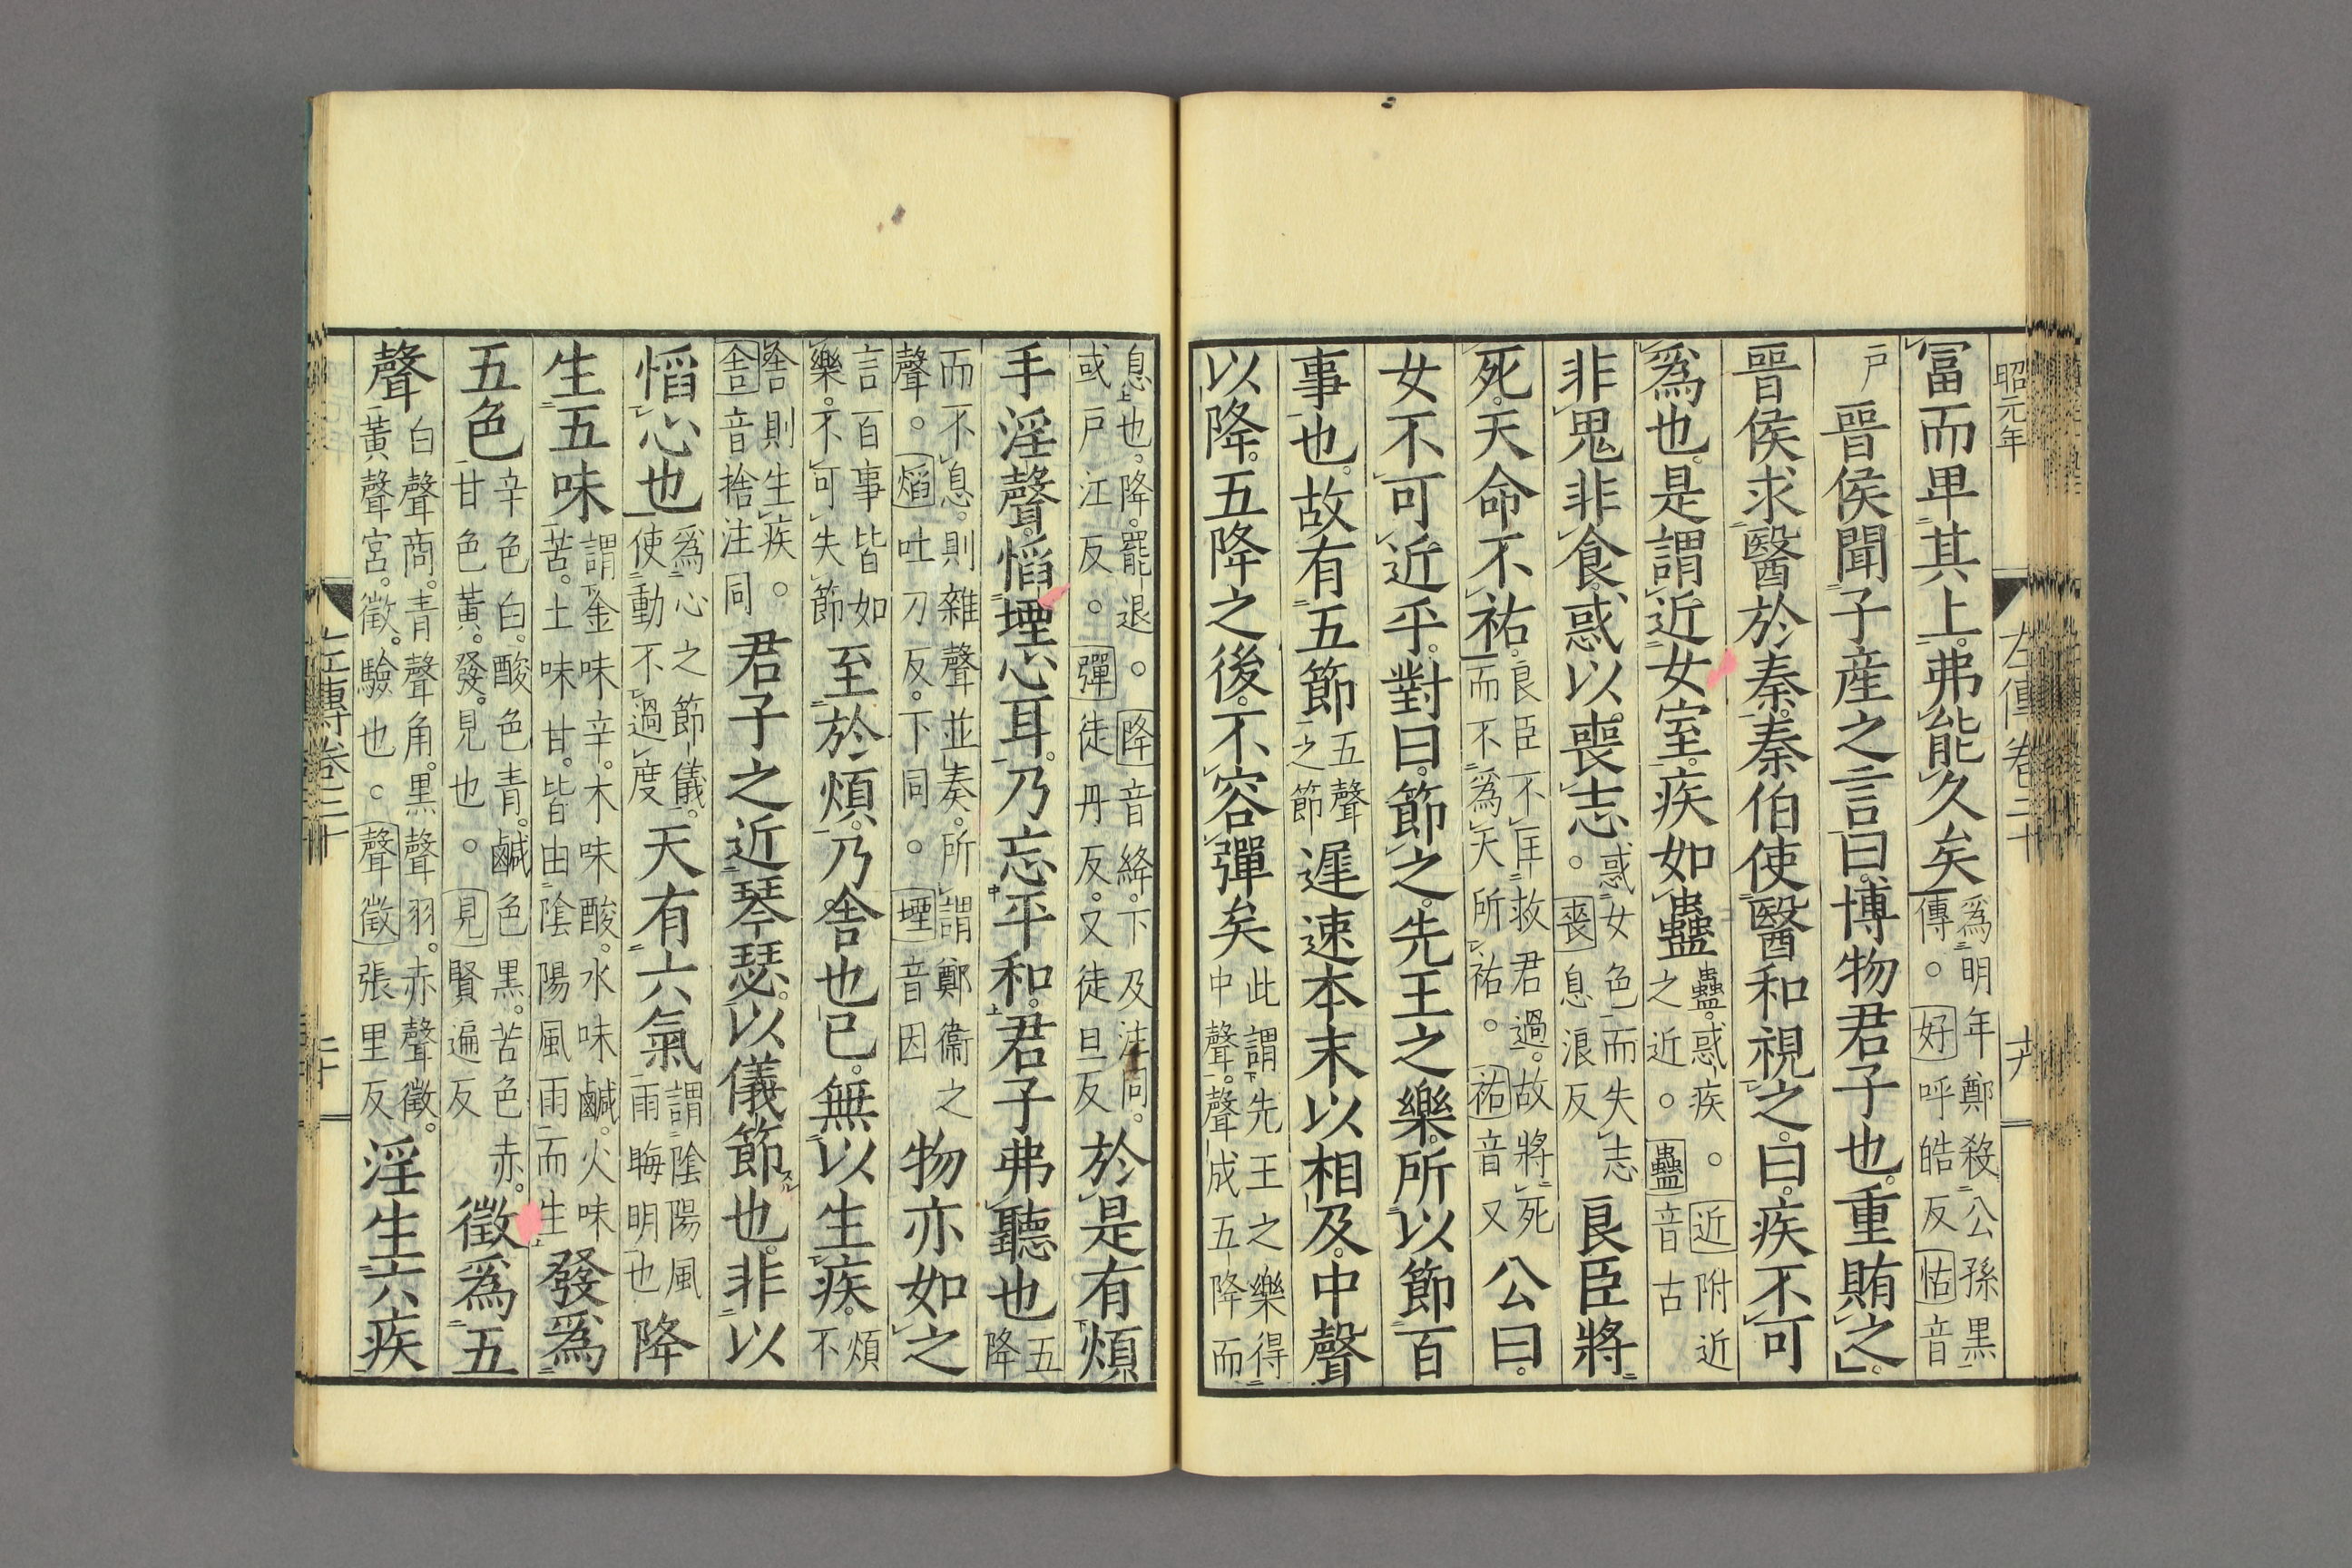 昭元年
左傳卷二十
冨而卑其上。弗能久矣爲明年鄭殺公孫黑傳。好呼皓反怙音
戶晉侯聞子産之言曰。博物君子也。重賄之。
晉侯求醫於秦。秦伯使醫和視之。曰。疾不可
爲也。是謂近女室。疾如蠱蠱。惑疾。近附近之近。蠱音古
非鬼非食。惑以喪志。惑女色而失志喪息浪反良臣將
死。天命不祐。良臣不匡救君過。故將死而不爲天所祐。祐音又公曰。
女不可近乎。對曰。節之。先王之樂。所以節百
事也。故有五節五聲之節遲速本末以相及。中聲
以降。五降之後。不容彈矣此謂先王之樂得中聲。聲成五降而
息也。降。罷退。降音絳。下及注同。或戶江反。彈徒丹反。又徒旦反於是有煩
手淫聲。慆堙心耳。乃忘平和。君子弗聽也五降
而不息。則雜聲並奏。所謂鄭衞之聲。慆吐刀反。下同。堙音因物亦如之
言百事皆如樂。不可失節至於煩。乃舍也已。無以生疾。煩不
舍則生疾。舍音捨注同君子之近琴瑟。以儀節也。非以
慆心也爲心之節儀。使動不過度天有六氣謂陰陽風雨晦明也降
生五味謂金味辛。木味酸。水味鹹。火味苦。土味甘。皆由陰陽風雨而生發爲
五色辛色白。酸色青。鹹色黑。苦色赤。甘色黃。發。見也。見賢遍反徵爲五
聲白聲商。青聲角。黑聲羽。赤聲徵。黃聲宮。徵。驗也。聲徵張里反淫生六疾
左傳卷二十
二十